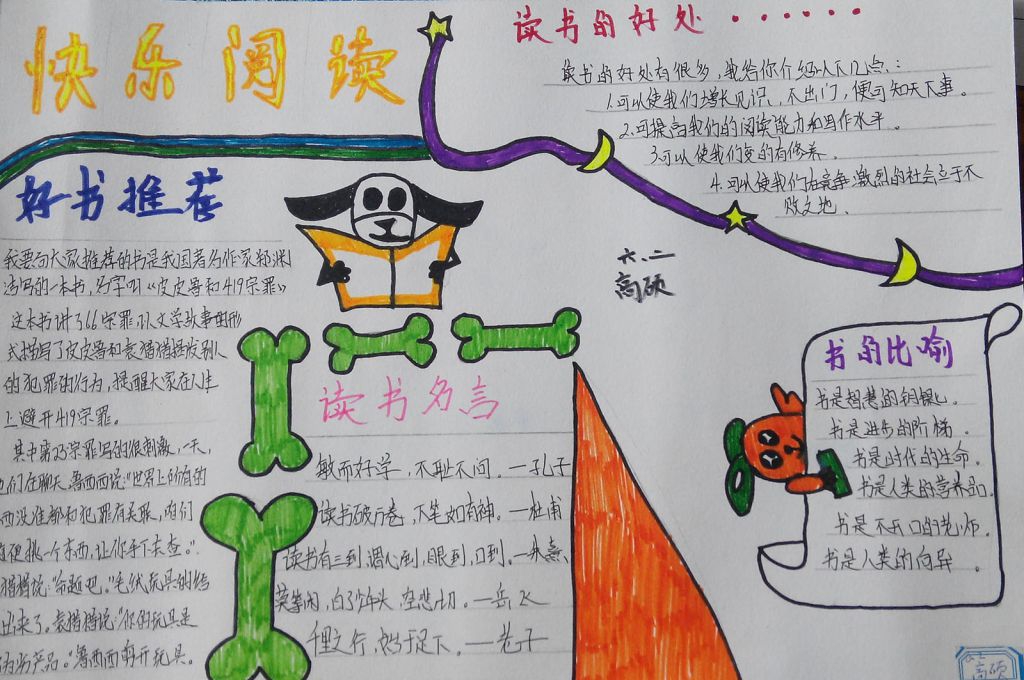 快乐阅读
读书的好处······
读书的好处有很多,我给你介绍以下几点:
1.可以使我们增长见识,不出门,便可知天下事。
2.可提高我们的阅读能力和写作水平。
3.可以使我们变的有修养。
4.可以使我们在竞争激烈的社会立于不
败之地。
好书推荐
我要向大家推荐的书是我国著名作家郑渊
洁写的一本书,名字叫《皮皮鲁和419宗罪》
这本书讲了66宗罪,以文学故事的形
式描写了皮皮鲁和袁猎猎揭发别人
的犯罪的行为,提醒大家在人生
上避开419宗罪。
其中第23宗罪写的很刺激,一天,
他们在聊天,鲁西西说:“世界上所有的
西没准都和犯罪有关联,咱们
便挑一个东西,让你手下去查。”
猎猎说:“命题吧。”毛绒玩具的结
出来了。袁猎猎说:“你的玩具是
产品。”鲁西西剪开玩具。
六.二
高硕
读书名言
敏而好学,不耻下问。—孔子
读书破万卷,下笔如有神。—杜甫
读书有三到,谓心到,眼到,口到。—朱熹
莫等闲,白了少年头,空悲切。—岳飞
千里之行,始于足下。—老子
书的比喻
书是智慧的钥匙。
书是进步的阶梯。
书是时代的生命。
书是人类的营养品。
书是不开口的老师。
书是人类的向导。
六.二
高硕